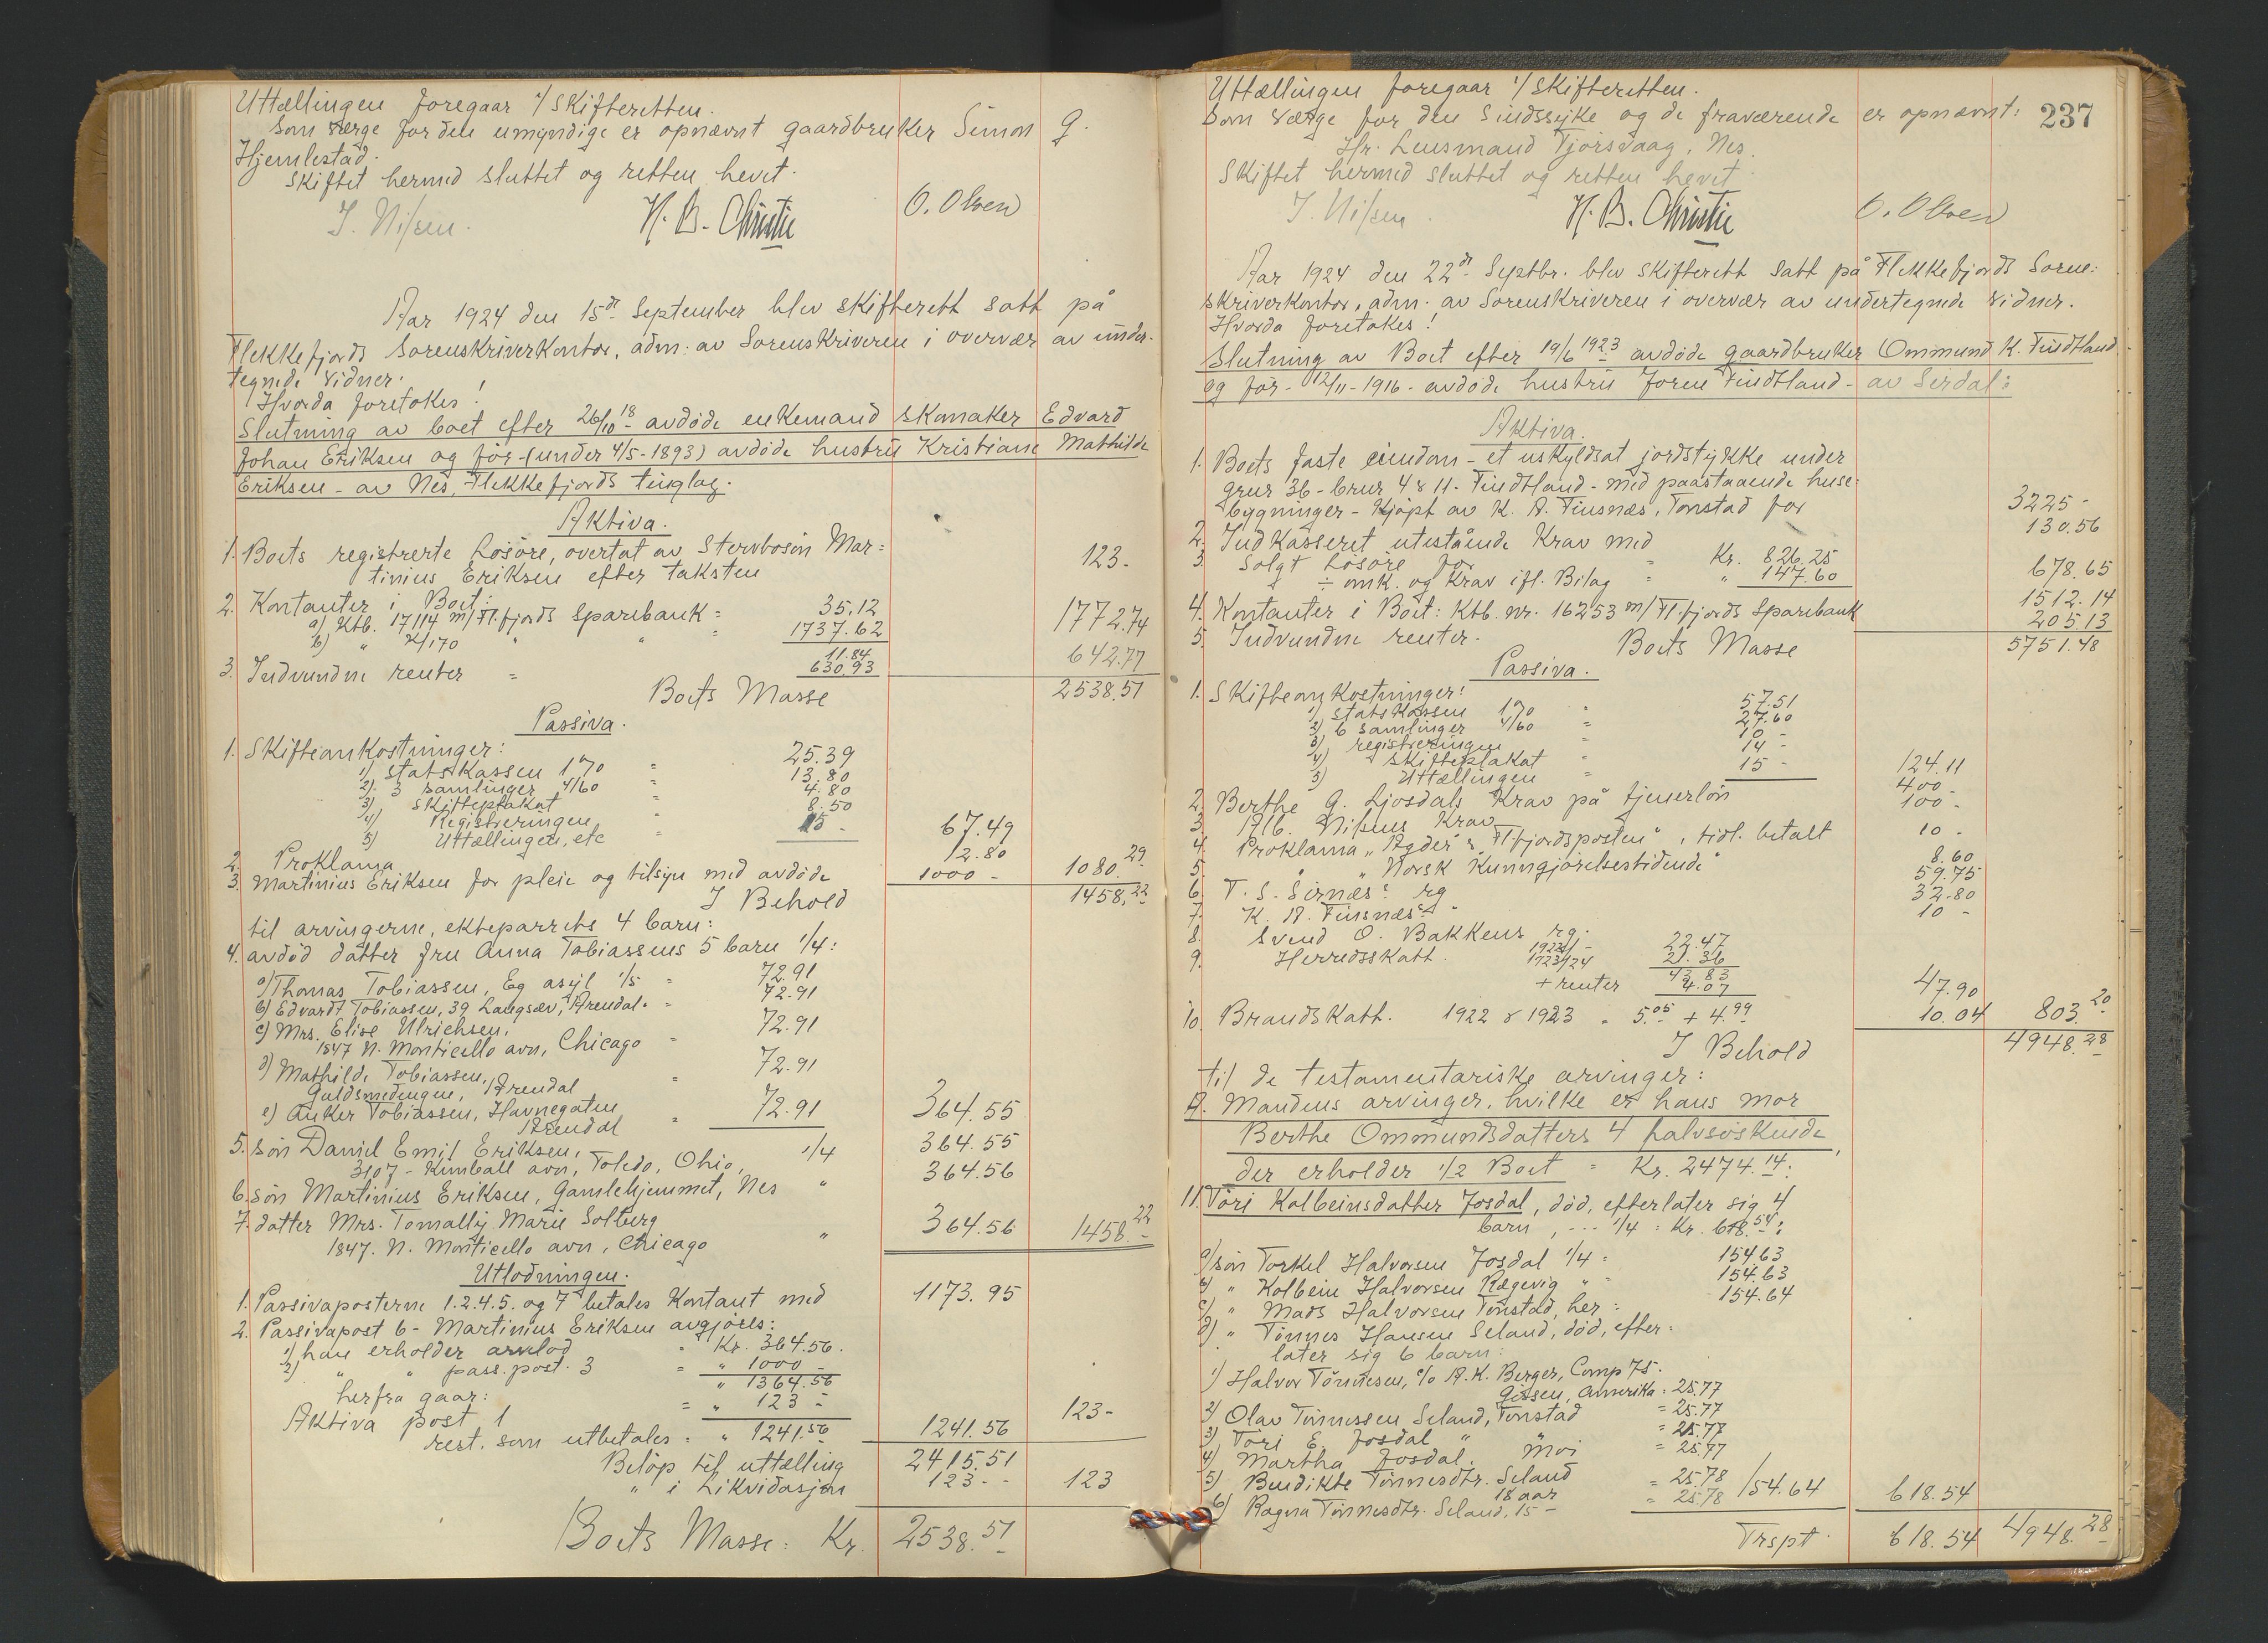 Uttællingen foregaar i/ Skifteretten.
Som værge for den umyndige er opnævnt gaardbruker Simon G.
Hjemlestad.
Skiftet hermed sluttet og retten hevet.
J. Nilsen. H. B. Christie O. Olsen
Aar 1924 den 15de September blev skifterett satt på
Flekkefjords Sorenskriverkontor, adm: av Sorenskriveren i overvær av under-
tegnede vidner.
Hvorda foretokes!
Slutning av boet efter 26/10 18 avdøde enkemand skomaker Edvard
Johan Eriksen og før-(under 4/5-1893) avdøde hustru Kristiane Mathilde
Eriksen - av Nes, Flekkefjords tinglag.
Aktiva.
1. Boets registrerte Løsøre, overtat av Stervbosøn Mar=
tinius Eriksen efter taksten 123.-
2. Kontanter i Boet:
a) Ktb. 17114 m/ Fl.fjords Sparebank = 35.12
b) " K/170 " " = 1737.62 1772.74
3. Indvundne renter = 11.84
630.93 642.77
Boets Masse 2538.51
Passiva.
1. Skifteomkostninger:
1) Statskassen 1% = 25.39
2) 3 samlinger 4/60 = 13.80
3) Skifteplakat = 4.80
4) Registreringen " 8.50
5) Uttællingen, etc = 15 - 67.49
2. Proklama 12.80
3. Martinius Eriksen for pleie og tilsyn med avdøde 1000 - 1080.29
I Behold 1458.22
til arvingerne, ekteparrets 4 barn:
4. avdød datter fru Anna Tobiassens 5 barn 1/4:
a) Thomas Tobiassen, Eg asyl 1/5 = 72.91
b) Edvardt Tobiassen, 39 Langsæv, Arendal. = 72.91
c) Mrs. Elise Ulrichsen,
1847 N. Monticello avn, Chicago = 72.91
d) Mathilde Tobiassen,
Guldsmedengen, Arendal = 72.91
e) Anker Tobiassen, Havnegaten
Arendal = 72.91 364.55
5. søn Daniel Emil Eriksen,
3107 - Kimball avn, Toledo, Ohio, 1/4 364.55
6. søn Martinius Eriksen, Gamlehjemmet, Nes " 364.56
7. datter Mrs. Tomally Marie Solberg
1847. N. Monticello avn, Chicago " 364.56 1458.22
Utlodningen.
1. Passivaposterne 1.2.4.5. og 7 betales Kontant med 1173.95
2. Passivapost 6 - Martinius Eriksen avgjøres:
1) han erholder arvelod " Kr. 364.56.
2) " " pass. post. 3 = " 1000 -
" 1364.56
herfra gaar:
Aktiva post 1 = " 123 - 123-
rest. som utbetales = " 1241.56 1241.56
Beløp til uttælling 2415.51
" i Likvidasjon 123 -- 123
Boets Masse: Kr. 2538.51
237
Uttællingen foregaar i/ Skifteretten.
Som værge for den Sindssyke og de fraværende er opnævnt:
Hr. Lensmand Tjorsvaag, Nes.
Skiftet hermed sluttet og retten hevet.
J. Nilsen. H. B. Christie O. Olsen
Aar 1924 den 22de Septbr. blev skifterett satt på Flekkefjords Soren:
skriverkontor, adm. av Sorenskriveren i overvær av undertegnede vidner.
Hvorda foretokes!
Slutning av Boet efter 19/6 1923 avdøde gaardbruker Ommund K. Findtland
og før - 12/11-1916 - avdøde hustru Joren Findtland - av Serdal:
Aktiva.
1. Boets faste eiendom - et uskyldsat jordstykke under
gnur 36 - bnur 4 & 11 - Findtland - med paastaaende huse-
bygninger - Kjøpt av K. A. Finsnæs, Tonstad for 3225 -
2. Indkasseret utestående Krav med 130.56
3. Solgt Løsøre for = Kr. 826.25
÷ omk. og Krav ifl. Bilag = " 147.60 678.65
4. Kontanter i Boet: Ktb. nr. 16253 m/ Fl.fjords Sparebank 1512.14
5. Indvundne renter. 205.13
Boets Masse 5751.48
Passiva.
1. Skifteomkostninger:
1) Statskassen 1% " 57.51
2) 6 samlinger 4/60 = 27.60
3) registreringen = 10 -
4) Skifteplakat " 14 -
5) Uttællingen = 15 - 124.11
2. Berthe G. Ljosdals Krav på tjenerløn 400 -
3. 1916. Nilsens Krav 100 -
4. Proklama "Agder" & "Fl.fjordsposten", tidl. betalt 10 -
5. " "Norsk Kunngjørelsestidende" 8.60
6. T. S. Sirnæs: rg 59.75
7. K. A. Finsnæs: " 32.80
8. Svend O. Bakkens rg. 10 -
9. Herredsskatt. 22.47
1923/24 21.36
43.83
+ renter 4.07 47.90
10. Brandskatt. 1922 & 1923 = 5.05 + 4.99 10.04 803.20
I Behold 4948.28
til de testamentariske arvinger:
A. Mandens arvinger, hvilke er hans mor
Berthe Ommundsdatters 4 halvsøskende,
der erholder 1/2 Boet = Kr. 2474.14:
11. Tøri Kolbeinsdatter Josdal, død, efterlater sig 4
barn, --- 1/4 = Kr. 618.54:
a) søn Torkel Halvorsen Josdal 1/4 = 154.63
b) " Kolbein Halvorsen Rægevig " = 154.63
c) " Mads Halvorsen Tonstad, her = 154.64
d) " Tønnes Hansen Seland, død, efter=
later sig 6 barn:
1) Halvor Tønnesen, c/o A. K. Berger, Comp 75.
Amerika = 25.77
2) Olav Tønnessen Seland, Tonstad = 25.77
3) Tøri E. Josdal " " = 25.77
4) Martha Josdal. Moi = 25.77
5) Bendikte Tønnesdtr. Seland 18 aar = 25.78
6) Ragna Tønnesdtr. Seland, 15 - = 25.78 154.64 618.54
Trspt. 618.54 4948.28